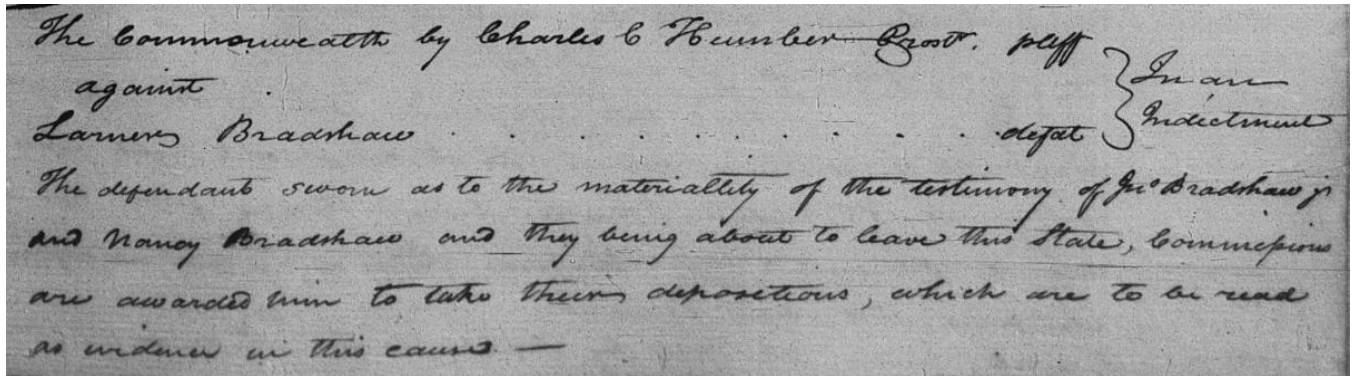 The Commonwealth by Charles C Humber Prosr. plff
against
Larner Bradshaw . . . . . . . . . defat
In an
Indictment
The defendant sworn as to the materiallity of the testimony of Jno Bradshaw jr
and Nancy Bradshaw and they being about to leave this State, Commissions
are awarded him to take their depositions, which are to be read
as evidence in this cause. —